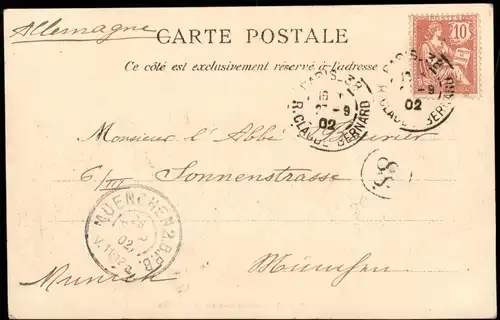 Allemagne
CARTE POSTALE
Ce côté est exclusivement réservé à l'adresse
10
PARIS-38
02
R. CLAUDE BERNARD
PARIS-38
-9
02
R. CLAUDE BERNARD
Monsieur l'Abbé
6/III Sonnenstrasse
MUENCHEN 2.B.P.
02
München
Munich